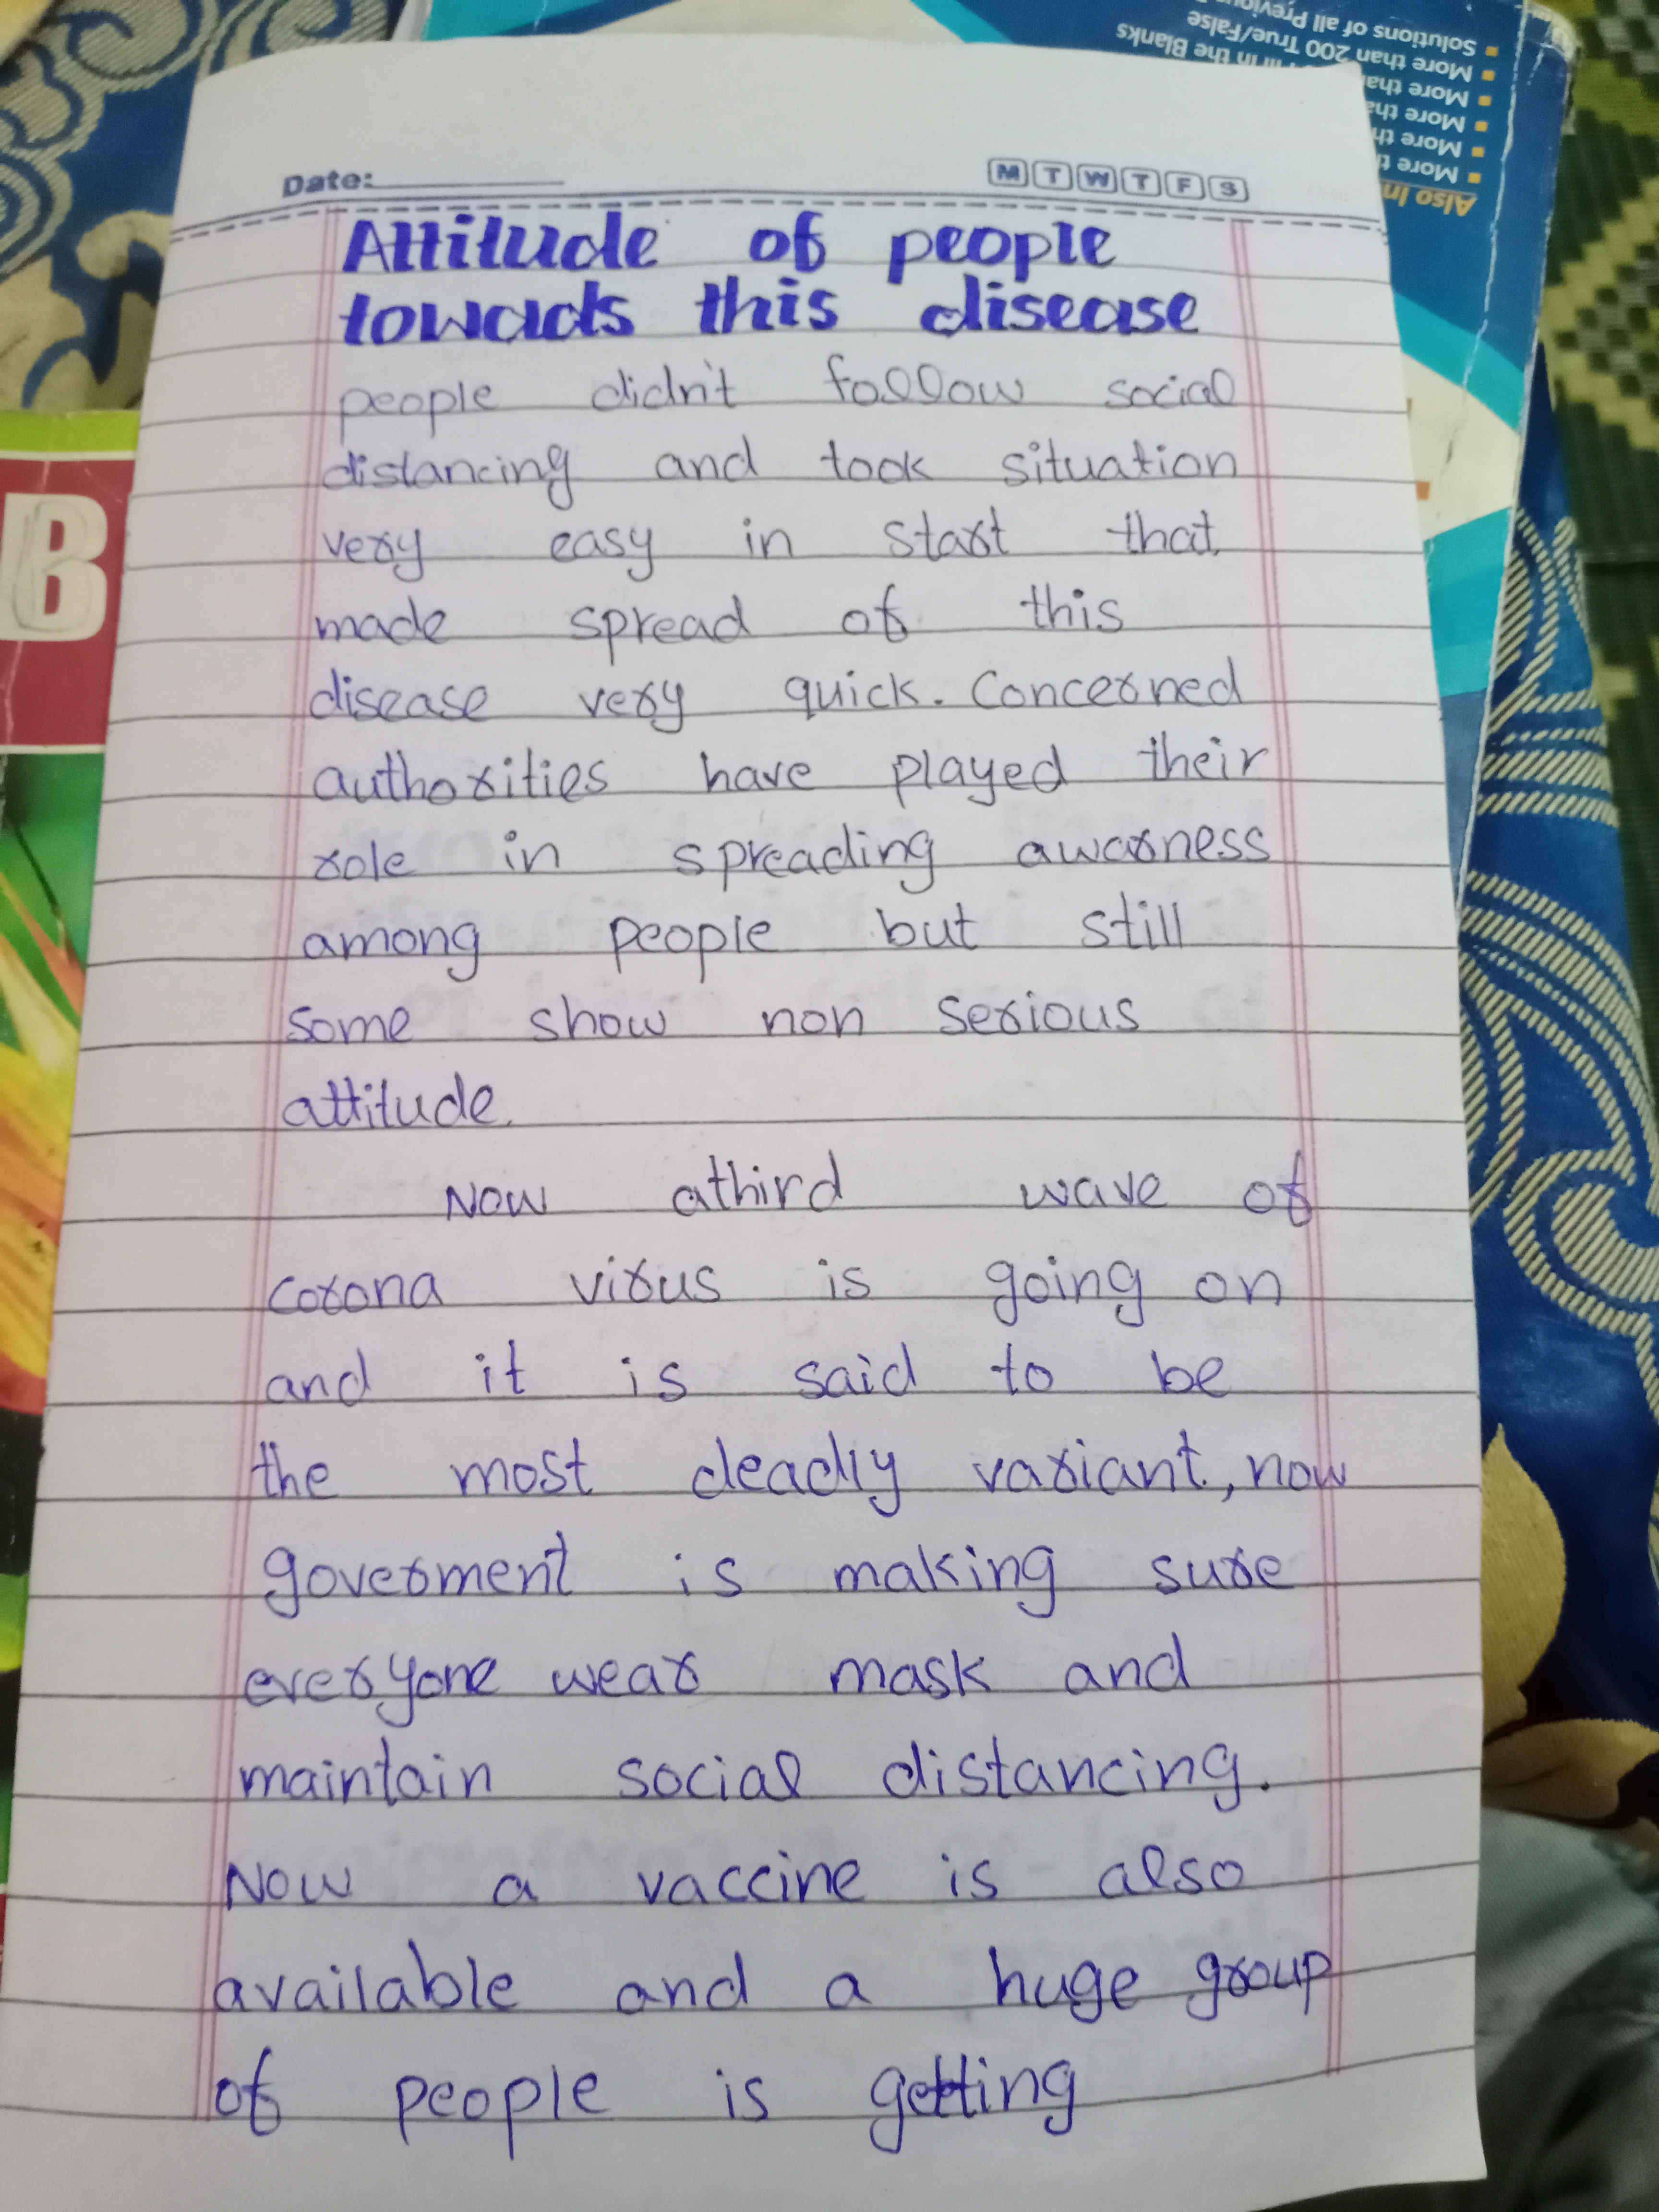 Solutions of all Previous
More than 200 True/False
Fill in the Blanks
More than
More tha
More th
More t
Also In
B
Date:
M T W T F S
Attitude of people
towards this disease
people didn't follow social
distancing and took situation
very easy in start that
made spread of this
disease very quick. Concerned
authorities have played their
role in spreading awarness
among people but still
some show non serious
attitude.
Now athird wave of
corona virus is going on
and it is said to be
the most deadly variant, now
goverment is making sure
everyone wear mask and
maintain social distancing.
Now a vaccine is also
available and a huge group
of people is getting